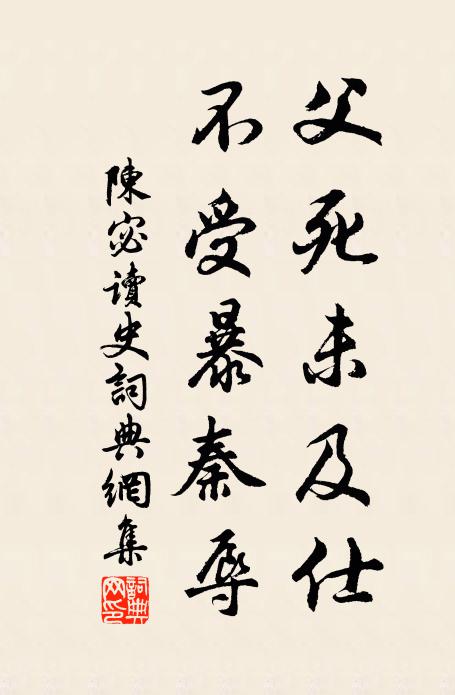 父死未及仕
不受暴秦辱
陳宓讀史詞典網集
詞典網印